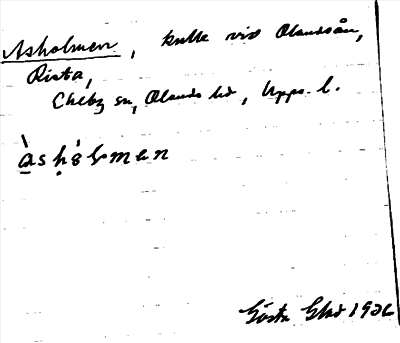 Asholmen, kulle vid Olandsån,
Rista,
Ekeby sn, Olands hd, Upps. l.
àshólmen
Gösta 1926